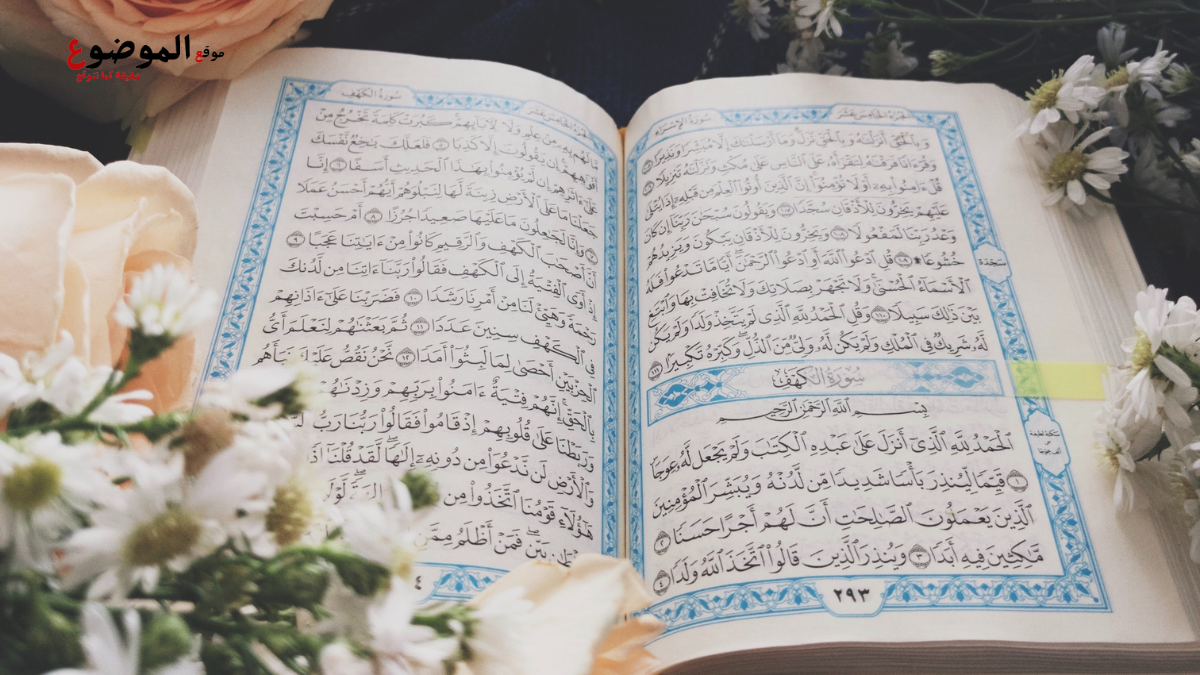 موقع الموضوع
سُورَةُ الإِسْرَاءِ
الجُزْءُ الخَامِسَ عَشَرَ
وَبِٱلْحَقِّ أَنزَلْنَٰهُ وَبِٱلْحَقِّ نَزَلَ وَمَآ أَرْسَلْنَٰكَ إِلَّا مُبَشِّرًا وَنَذِيرًا ١٠٥
وَقُرْءَانًا فَرَقْنَٰهُ لِتَقْرَأَهُۥ عَلَى ٱلنَّاسِ عَلَىٰ مُكْثٍ وَنَزَّلْنَٰهُ تَنزِيلًا ١٠٦
قُلْ ءَامِنُوا۟ بِهِۦٓ أَوْ لَا تُؤْمِنُوٓا۟ إِنَّ ٱلَّذِينَ أُوتُوا۟ ٱلْعِلْمَ مِن قَبْلِهِۦٓ إِذَا يُتْلَىٰ
عَلَيْهِمْ يَخِرُّونَ لِلْأَذْقَانِ سُجَّدًا ١٠٧ وَيَقُولُونَ سُبْحَٰنَ رَبِّنَآ إِن كَانَ
وَعْدُ رَبِّنَا لَمَفْعُولًا ١٠٨ وَيَخِرُّونَ لِلْأَذْقَانِ يَبْكُونَ وَيَزِيدُهُمْ
خُشُوعًا ۩ ١٠٩ قُلِ ٱدْعُوا۟ ٱللَّهَ أَوِ ٱدْعُوا۟ ٱلرَّحْمَٰنَ أَيًّا مَّا تَدْعُوا۟ فَلَهُ
ٱلْأَسْمَآءُ ٱلْحُسْنَىٰ وَلَا تَجْهَرْ بِصَلَاتِكَ وَلَا تُخَافِتْ بِهَا وَٱبْتَغِ
بَيْنَ ذَٰلِكَ سَبِيلًا ١١٠ وَقُلِ ٱلْحَمْدُ لِلَّهِ ٱلَّذِى لَمْ يَتَّخِذْ وَلَدًا وَلَمْ يَكُن
لَّهُۥ شَرِيكٌ فِى ٱلْمُلْكِ وَلَمْ يَكُن لَّهُۥ وَلِىٌّ مِّنَ ٱلذُّلِّ وَكَبِّرْهُ تَكْبِيرًۢا ١١١
سَجْدَة
سُورَةُ الكَهْفِ
بِسْمِ ٱللَّهِ ٱلرَّحْمَٰنِ ٱلرَّحِيمِ
ٱلْحَمْدُ لِلَّهِ ٱلَّذِىٓ أَنزَلَ عَلَىٰ عَبْدِهِ ٱلْكِتَٰبَ وَلَمْ يَجْعَل لَّهُۥ عِوَجَا
١ قَيِّمًا لِّيُنذِرَ بَأْسًا شَدِيدًا مِّن لَّدُنْهُ وَيُبَشِّرَ ٱلْمُؤْمِنِينَ
ٱلَّذِينَ يَعْمَلُونَ ٱلصَّٰلِحَٰتِ أَنَّ لَهُمْ أَجْرًا حَسَنًا ٢
مَّٰكِثِينَ فِيهِ أَبَدًا ٣ وَيُنذِرَ ٱلَّذِينَ قَالُوا۟ ٱتَّخَذَ ٱللَّهُ وَلَدًا ٤
٢٩٣
سُورَةُ الكَهْفِ
الجُزْءُ الخَامِسَ عَشَرَ
مَّا لَهُم بِهِۦ مِنْ عِلْمٍ وَلَا لِءَابَآئِهِمْ كَبُرَتْ كَلِمَةً تَخْرُجُ مِنْ
أَفْوَٰهِهِمْ إِن يَقُولُونَ إِلَّا كَذِبًا ٥ فَلَعَلَّكَ بَٰخِعٌ نَّفْسَكَ
عَلَىٰٓ ءَاثَٰرِهِمْ إِن لَّمْ يُؤْمِنُوا۟ بِهَٰذَا ٱلْحَدِيثِ أَسَفًا ٦ إِنَّا
جَعَلْنَا مَا عَلَى ٱلْأَرْضِ زِينَةً لَّهَا لِنَبْلُوَهُمْ أَيُّهُمْ أَحْسَنُ عَمَلًا
٧ وَإِنَّا لَجَٰعِلُونَ مَا عَلَيْهَا صَعِيدًا جُرُزًا ٨ أَمْ حَسِبْتَ
أَنَّ أَصْحَٰبَ ٱلْكَهْفِ وَٱلرَّقِيمِ كَانُوا۟ مِنْ ءَايَٰتِنَا عَجَبًا ٩
إِذْ أَوَى ٱلْفِتْيَةُ إِلَى ٱلْكَهْفِ فَقَالُوا۟ رَبَّنَآ ءَاتِنَا مِن لَّدُنكَ
رَحْمَةً وَهَيِّئْ لَنَا مِنْ أَمْرِنَا رَشَدًا ١٠ فَضَرَبْنَا عَلَىٰٓ ءَاذَانِهِمْ
فِى ٱلْكَهْفِ سِنِينَ عَدَدًا ١١ ثُمَّ بَعَثْنَٰهُمْ لِنَعْلَمَ أَىُّ
ٱلْحِزْبَيْنِ أَحْصَىٰ لِمَا لَبِثُوٓا۟ أَمَدًا ١٢ نَّحْنُ نَقُصُّ عَلَيْكَ نَبَأَهُم
بِٱلْحَقِّ إِنَّهُمْ فِتْيَةٌ ءَامَنُوا۟ بِرَبِّهِمْ وَزِدْنَٰهُمْ
وَرَبَطْنَا عَلَىٰ قُلُوبِهِمْ إِذْ قَامُوا۟ فَقَالُوا۟ رَبُّنَا رَبُّ
وَٱلْأَرْضِ لَن نَّدْعُوَا۟ مِن دُونِهِۦٓ إِلَٰهًا لَّقَدْ قُلْنَآ إِذًا
هَٰٓؤُلَآءِ قَوْمُنَا ٱتَّخَذُوا۟ مِن
بَيِّنٍ فَمَنْ أَظْلَمُ مِمَّنِ